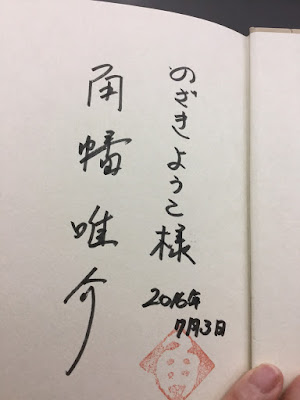 のざきようこ様
2016年
7月3日
角幡唯介